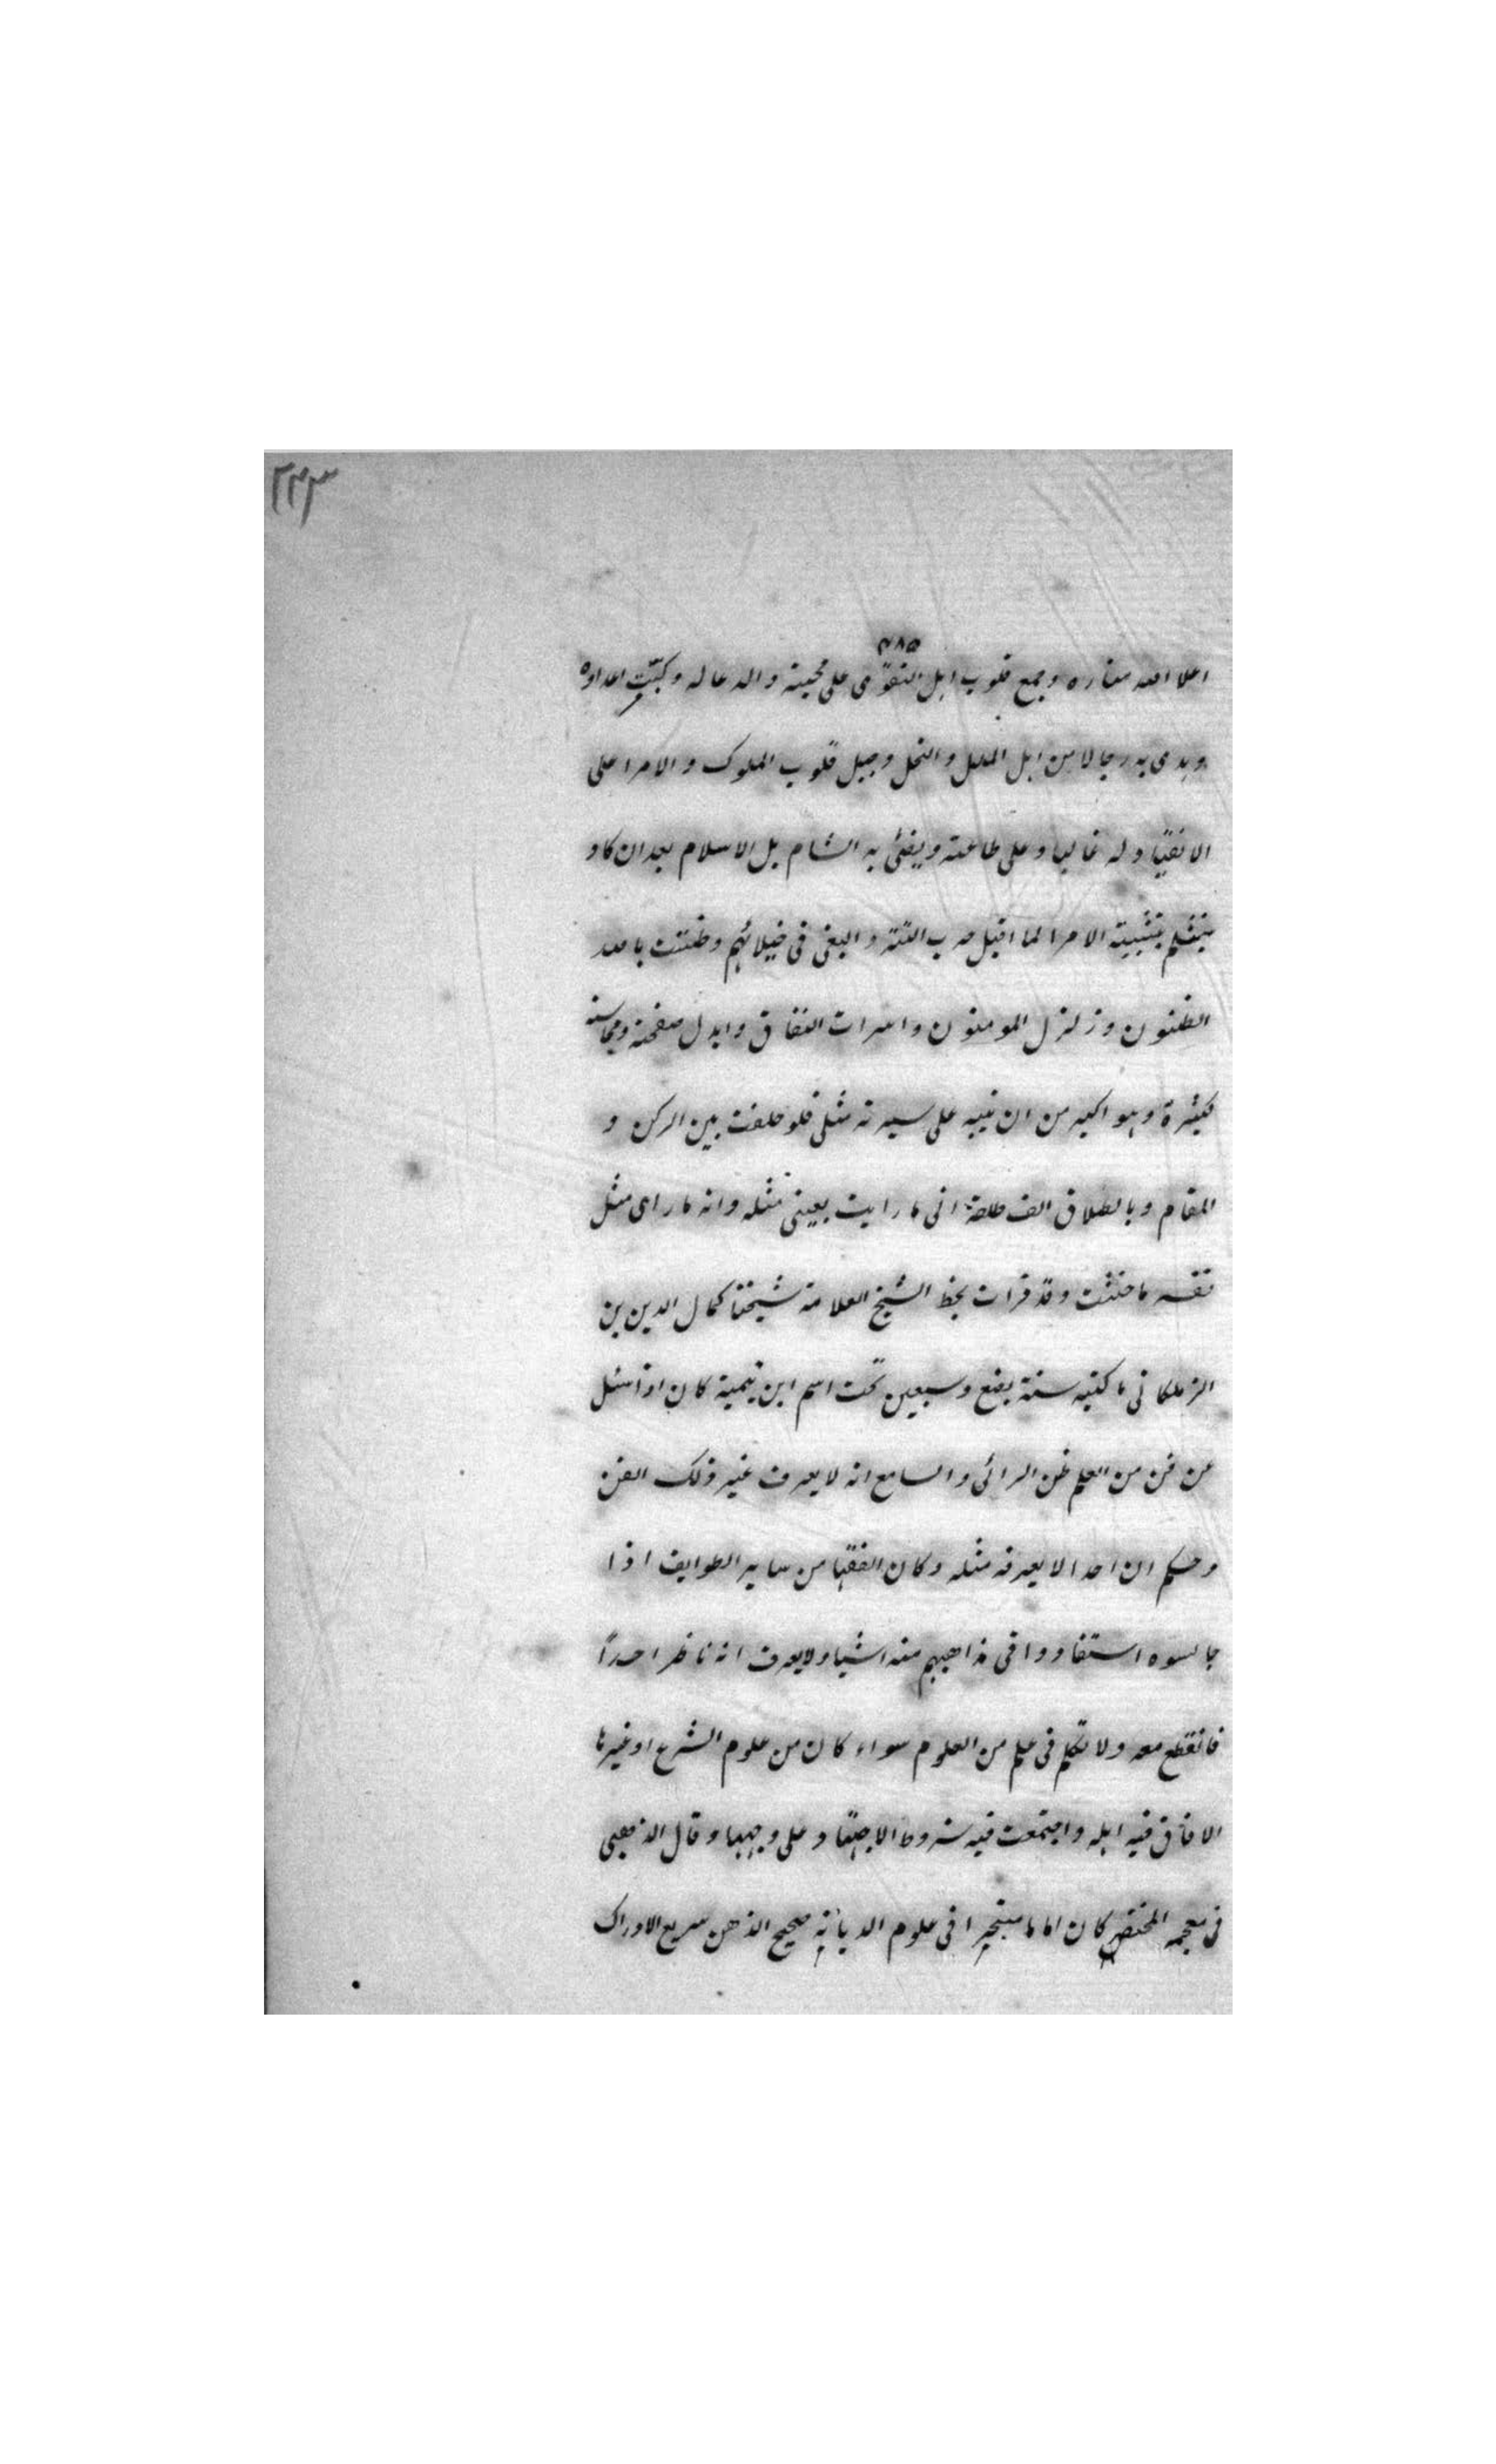 ٢٢٣
٣٨٥
اعلا الله مناره وجمع قلوب اہل التقوى على محبته والدعا له وكبّت اعداوه
وہدى به رجالا من اہل الملل والنحل وجبل قلوب الملوك والامرا على
الانقياد له غالبا وعلى طاعته ويضئى به الشام بل الاسلام بعد ان كاد
ينثلم بتثبيته الامرا لما اقبل حرب التتر والبغى فى خيلائہم وظننت بالله
الظنون وزلزل المومنون واسرات النفاق وابدل صفحته ومحاسنه
كثيرة وہو اكبر من ان ينبه على سيرته مثلى فلو حلفت بين الركن و
المقام وبالطلاق الف طلقة انى ما رايت بعينى مثله وانه ما راى مثل
نفسه ما حنثت وقد قرات بخط الشيخ العلامة شيخنا كمال الدين بن
الزملكانى ما كتبه سنة بضع وسبعين تحت اسم ابن تيمية كان اذا سئل
عن فن من العلم ظن الرائى والسامع انه لا يعرف غير ذلك الفن
وحكم ان احدا لا يعرفه مثله وكان الفقہا من ساير الطوايف اذا
جالسوه استفادوا فى مذاهبہم منه اشيا ولا يعرف انه ناظر احداً
فانقطع معه ولا تكلم فى علم من العلوم سواء كان من علوم الشرع او غيرہا
الا فاق فيه اہله واجتمعت فيه شروط الاجتہاد على وجہہا وقال الذهبى
فى معجمه المختصر كان اماما متبحرا فى علوم الديانة صحيح الذهن سريع الادراك